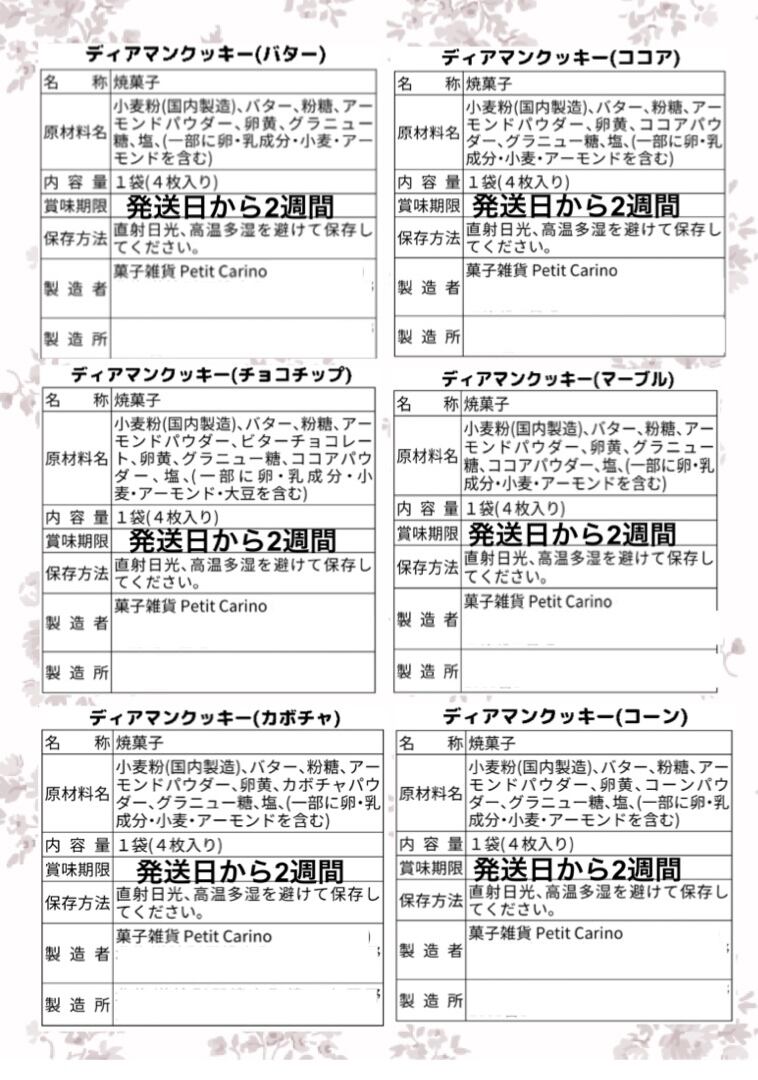 ディアマンクッキー(バター)
名　称 焼菓子
原材料名 小麦粉(国内製造)、バター、粉糖、アー
モンドパウダー、卵黄、グラニュー
糖、塩、(一部に卵・乳成分・小麦・アー
モンドを含む)
内容量 1袋(4枚入り)
賞味期限 発送日から2週間
保存方法 直射日光、高温多湿を避けて保存し
てください。
製造者 菓子雑貨 Petit Carino
製造所
ディアマンクッキー(ココア)
名　称 焼菓子
原材料名 小麦粉(国内製造)、バター、粉糖、アー
モンドパウダー、卵黄、ココアパウ
ダー、グラニュー糖、塩、(一部に卵・乳
成分・小麦・アーモンドを含む)
内容量 1袋(4枚入り)
賞味期限 発送日から2週間
保存方法 直射日光、高温多湿を避けて保存し
てください。
製造者 菓子雑貨 Petit Carino
製造所
ディアマンクッキー(チョコチップ)
名　称 焼菓子
原材料名 小麦粉(国内製造)、バター、粉糖、アー
モンドパウダー、ビターチョコレー
ト、卵黄、グラニュー糖、ココアパウ
ダー、塩、(一部に卵・乳成分・小
麦・アーモンド・大豆を含む)
内容量 1袋(4枚入り)
賞味期限 発送日から2週間
保存方法 直射日光、高温多湿を避けて保存し
てください。
製造者 菓子雑貨 Petit Carino
製造所
ディアマンクッキー(マーブル)
名　称 焼菓子
原材料名 小麦粉(国内製造)、バター、粉糖、アー
モンドパウダー、卵黄、グラニュー
糖、ココアパウダー、塩、(一部に卵・乳
成分・小麦・アーモンドを含む)
内容量 1袋(4枚入り)
賞味期限 発送日から2週間
保存方法 直射日光、高温多湿を避けて保存し
てください。
製造者 菓子雑貨 Petit Carino
製造所
ディアマンクッキー(カボチャ)
名　称 焼菓子
原材料名 小麦粉(国内製造)、バター、粉糖、アー
モンドパウダー、卵黄、カボチャパウ
ダー、グラニュー糖、塩、(一部に卵・乳
成分・小麦・アーモンドを含む)
内容量 1袋(4枚入り)
賞味期限 発送日から2週間
保存方法 直射日光、高温多湿を避けて保存し
てください。
製造者 菓子雑貨 Petit Carino
製造所
ディアマンクッキー(コーン)
名　称 焼菓子
原材料名 小麦粉(国内製造)、バター、粉糖、アー
モンドパウダー、卵黄、コーンパウ
ダー、グラニュー糖、塩、(一部に卵・乳
成分・小麦・アーモンドを含む)
内容量 1袋(4枚入り)
賞味期限 発送日から2週間
保存方法 直射日光、高温多湿を避けて保存し
てください。
製造者 菓子雑貨 Petit Carino
製造所